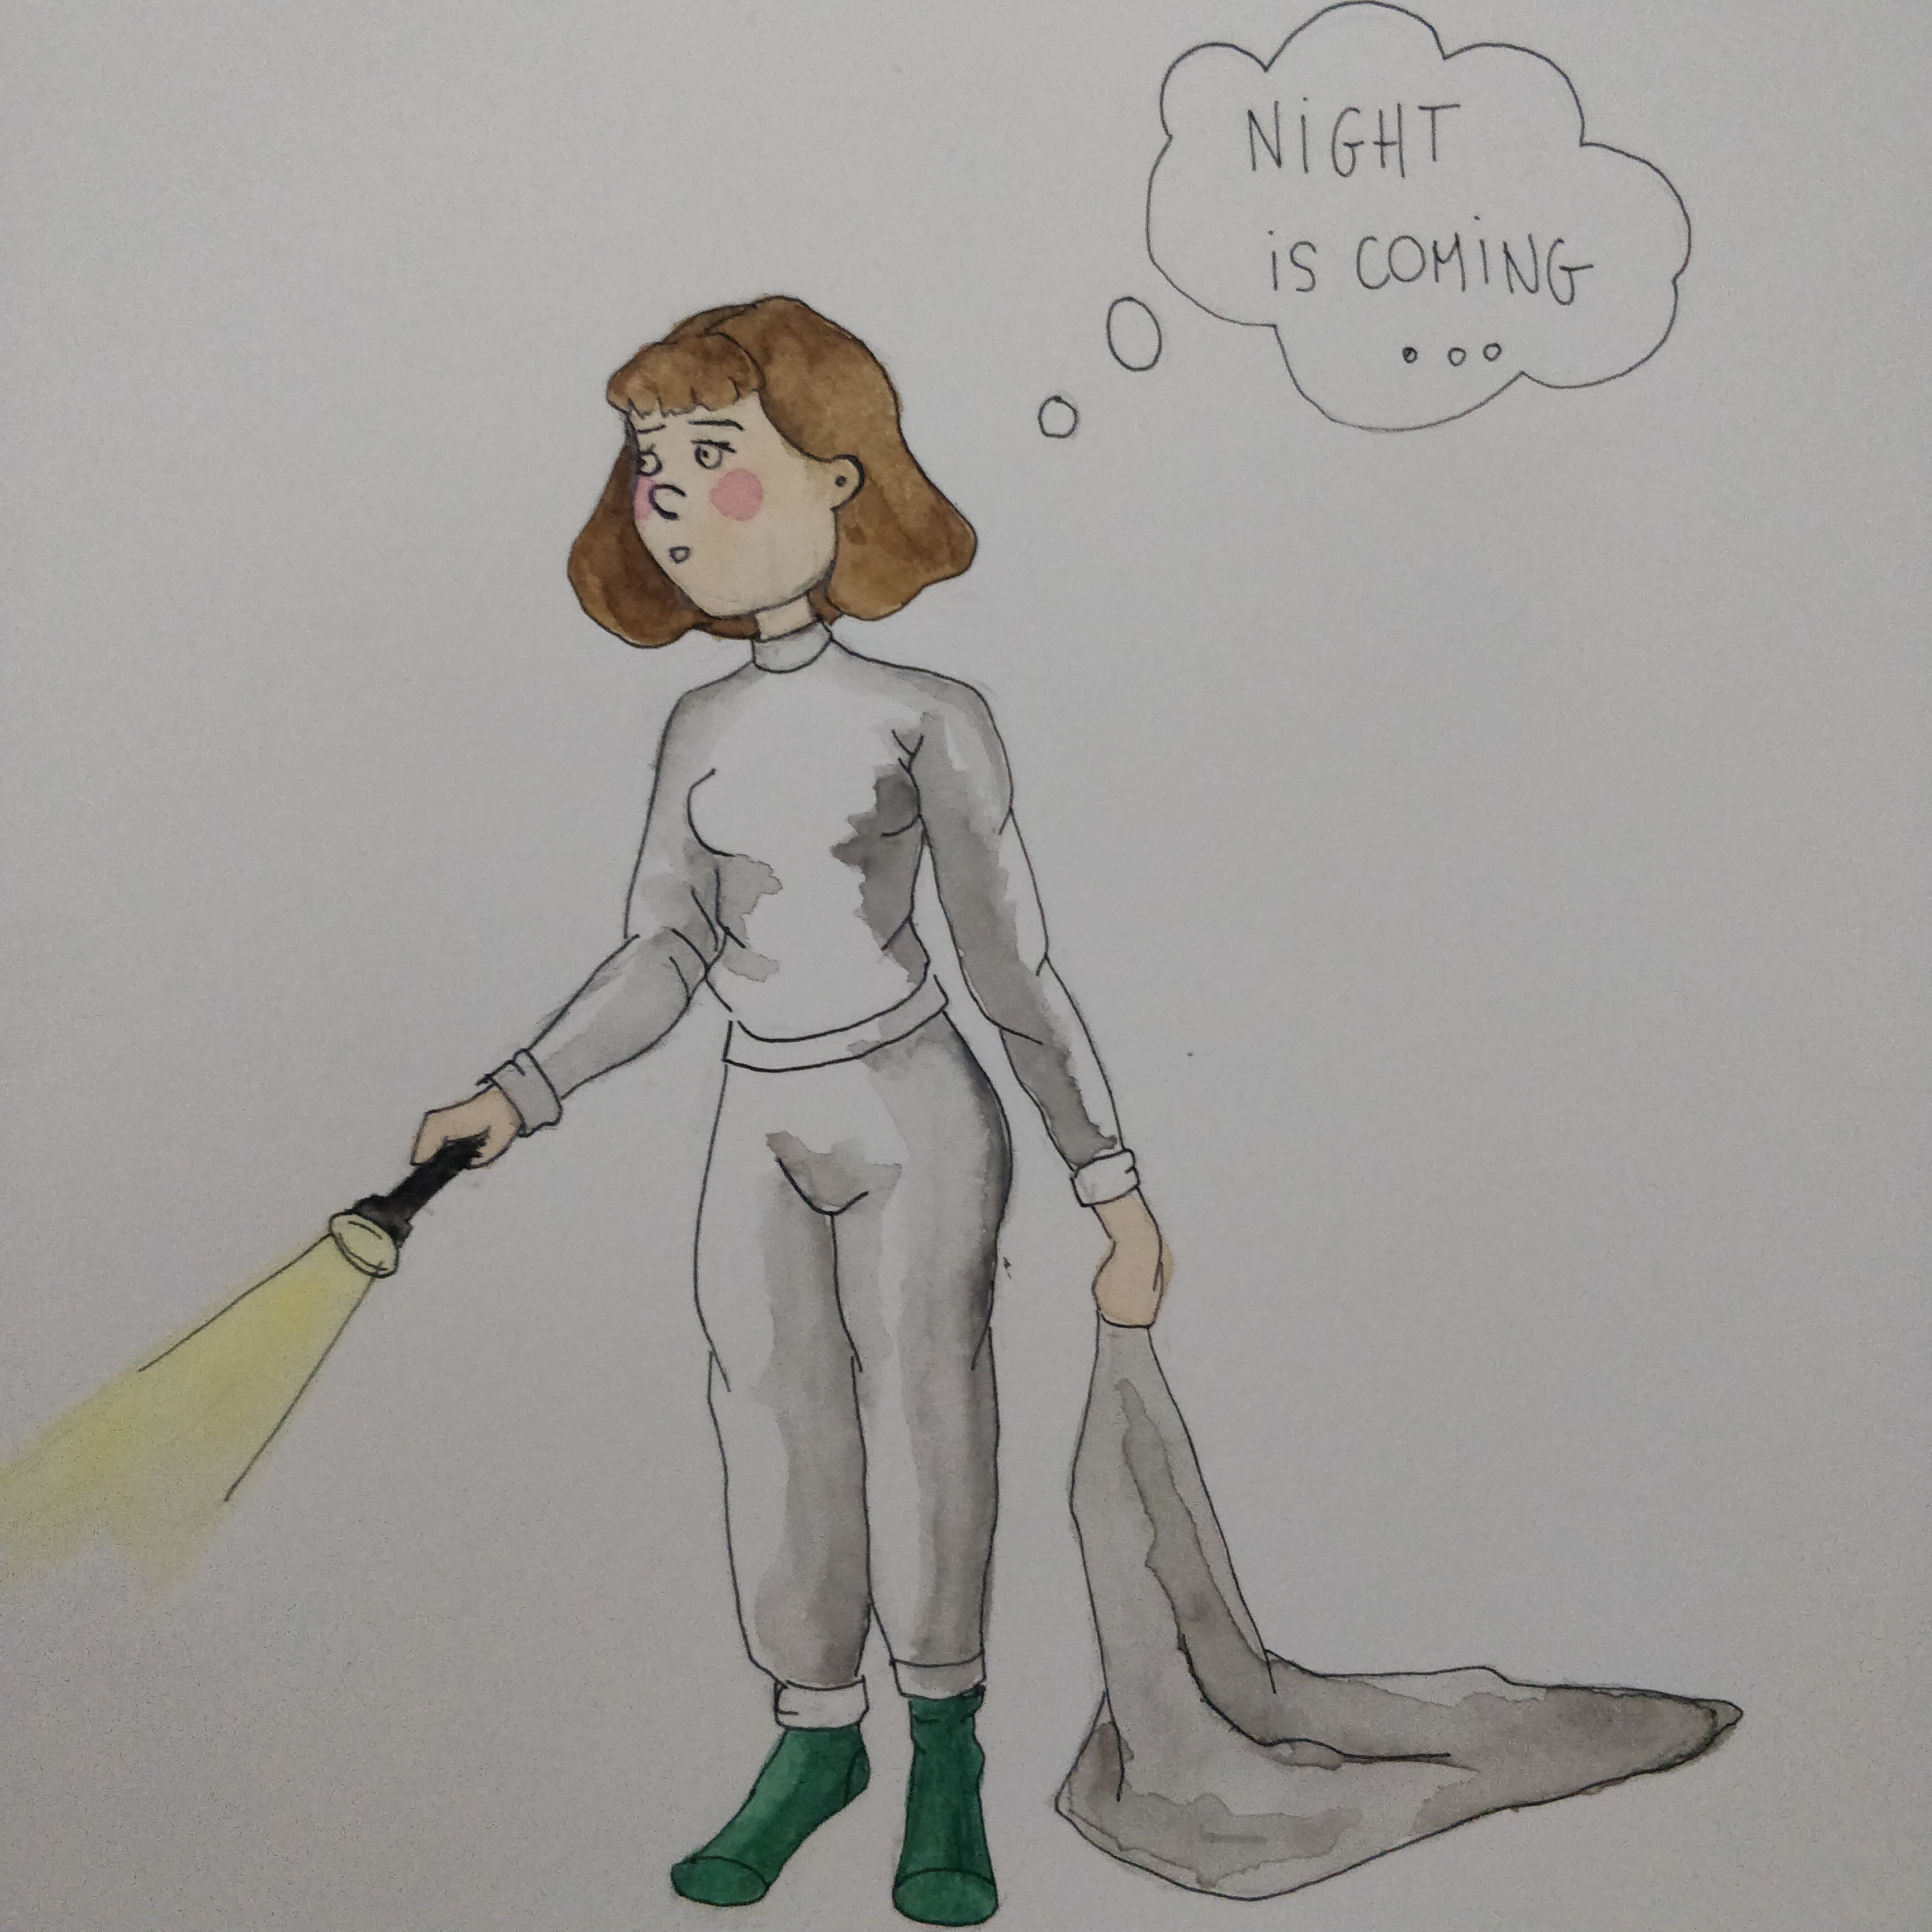 NiGHT
iS COMiNG
...